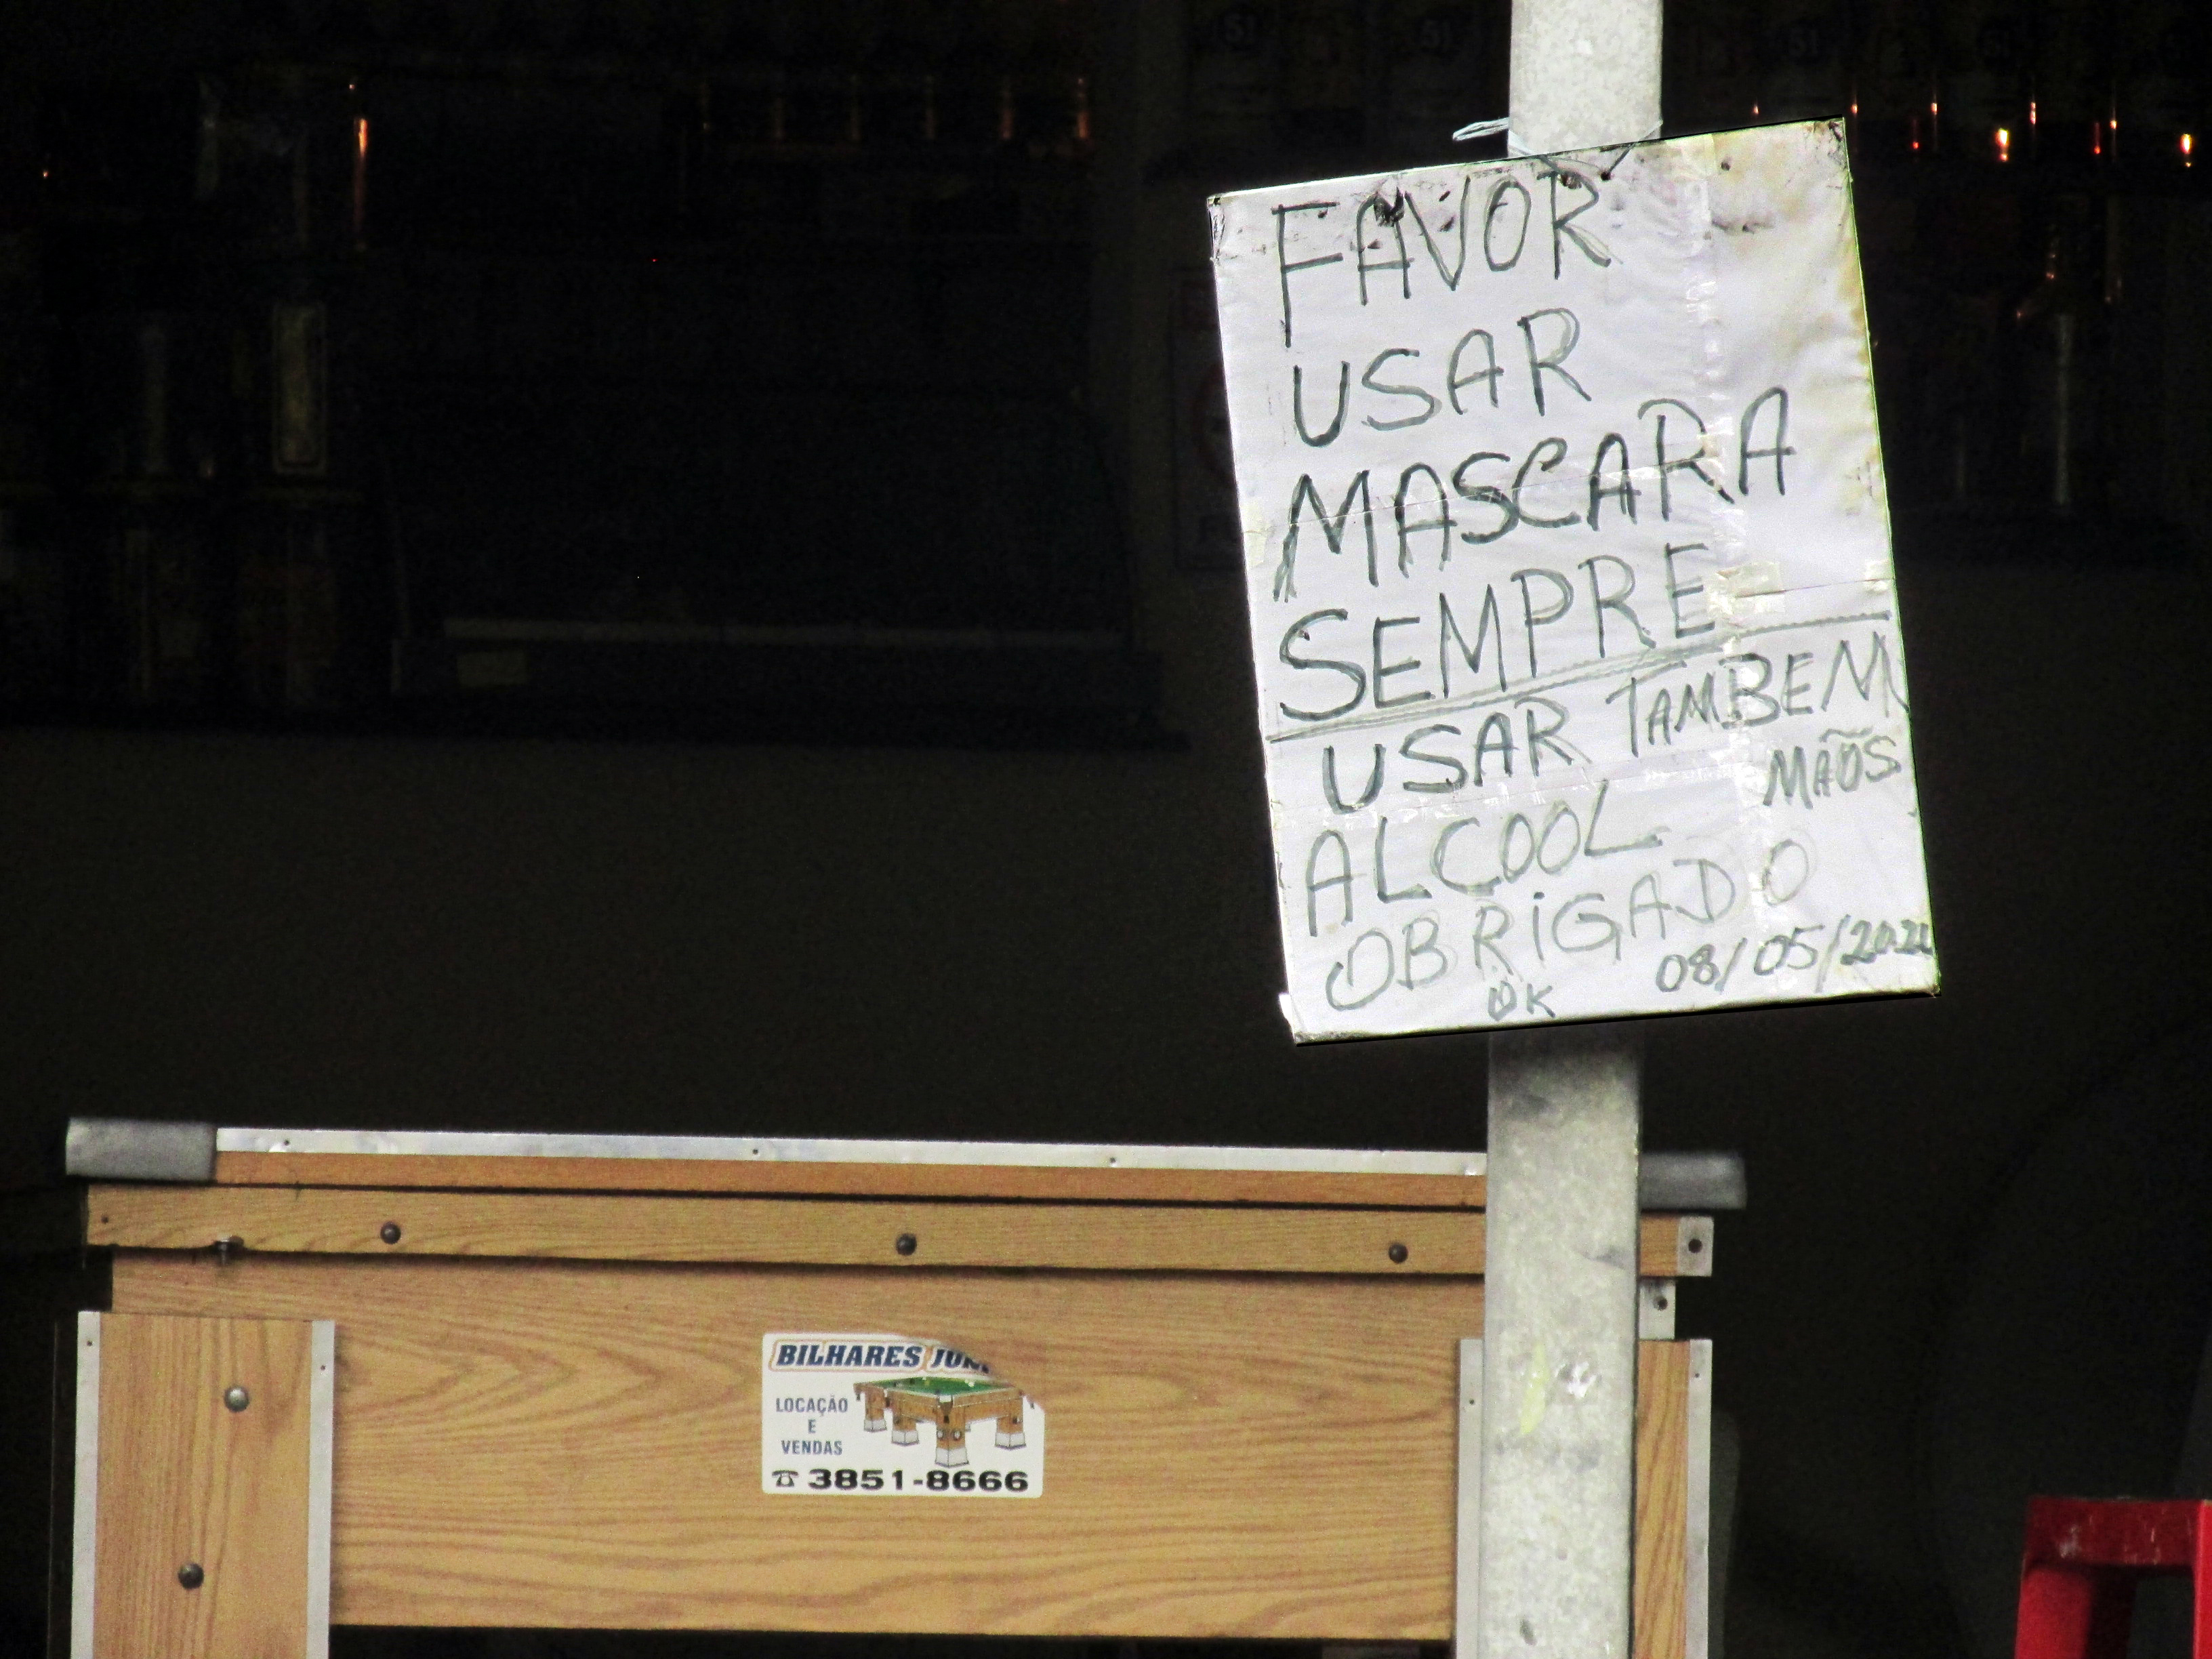 FAVOR
USAR
MASCARA
SEMPRE
USAR TAMBEM
MAÕS
ALCOOL
OBRIGADO
OK 08/05/2021
BILHARES
LOCAÇÃO
E
VENDAS
☎ 3851-8666